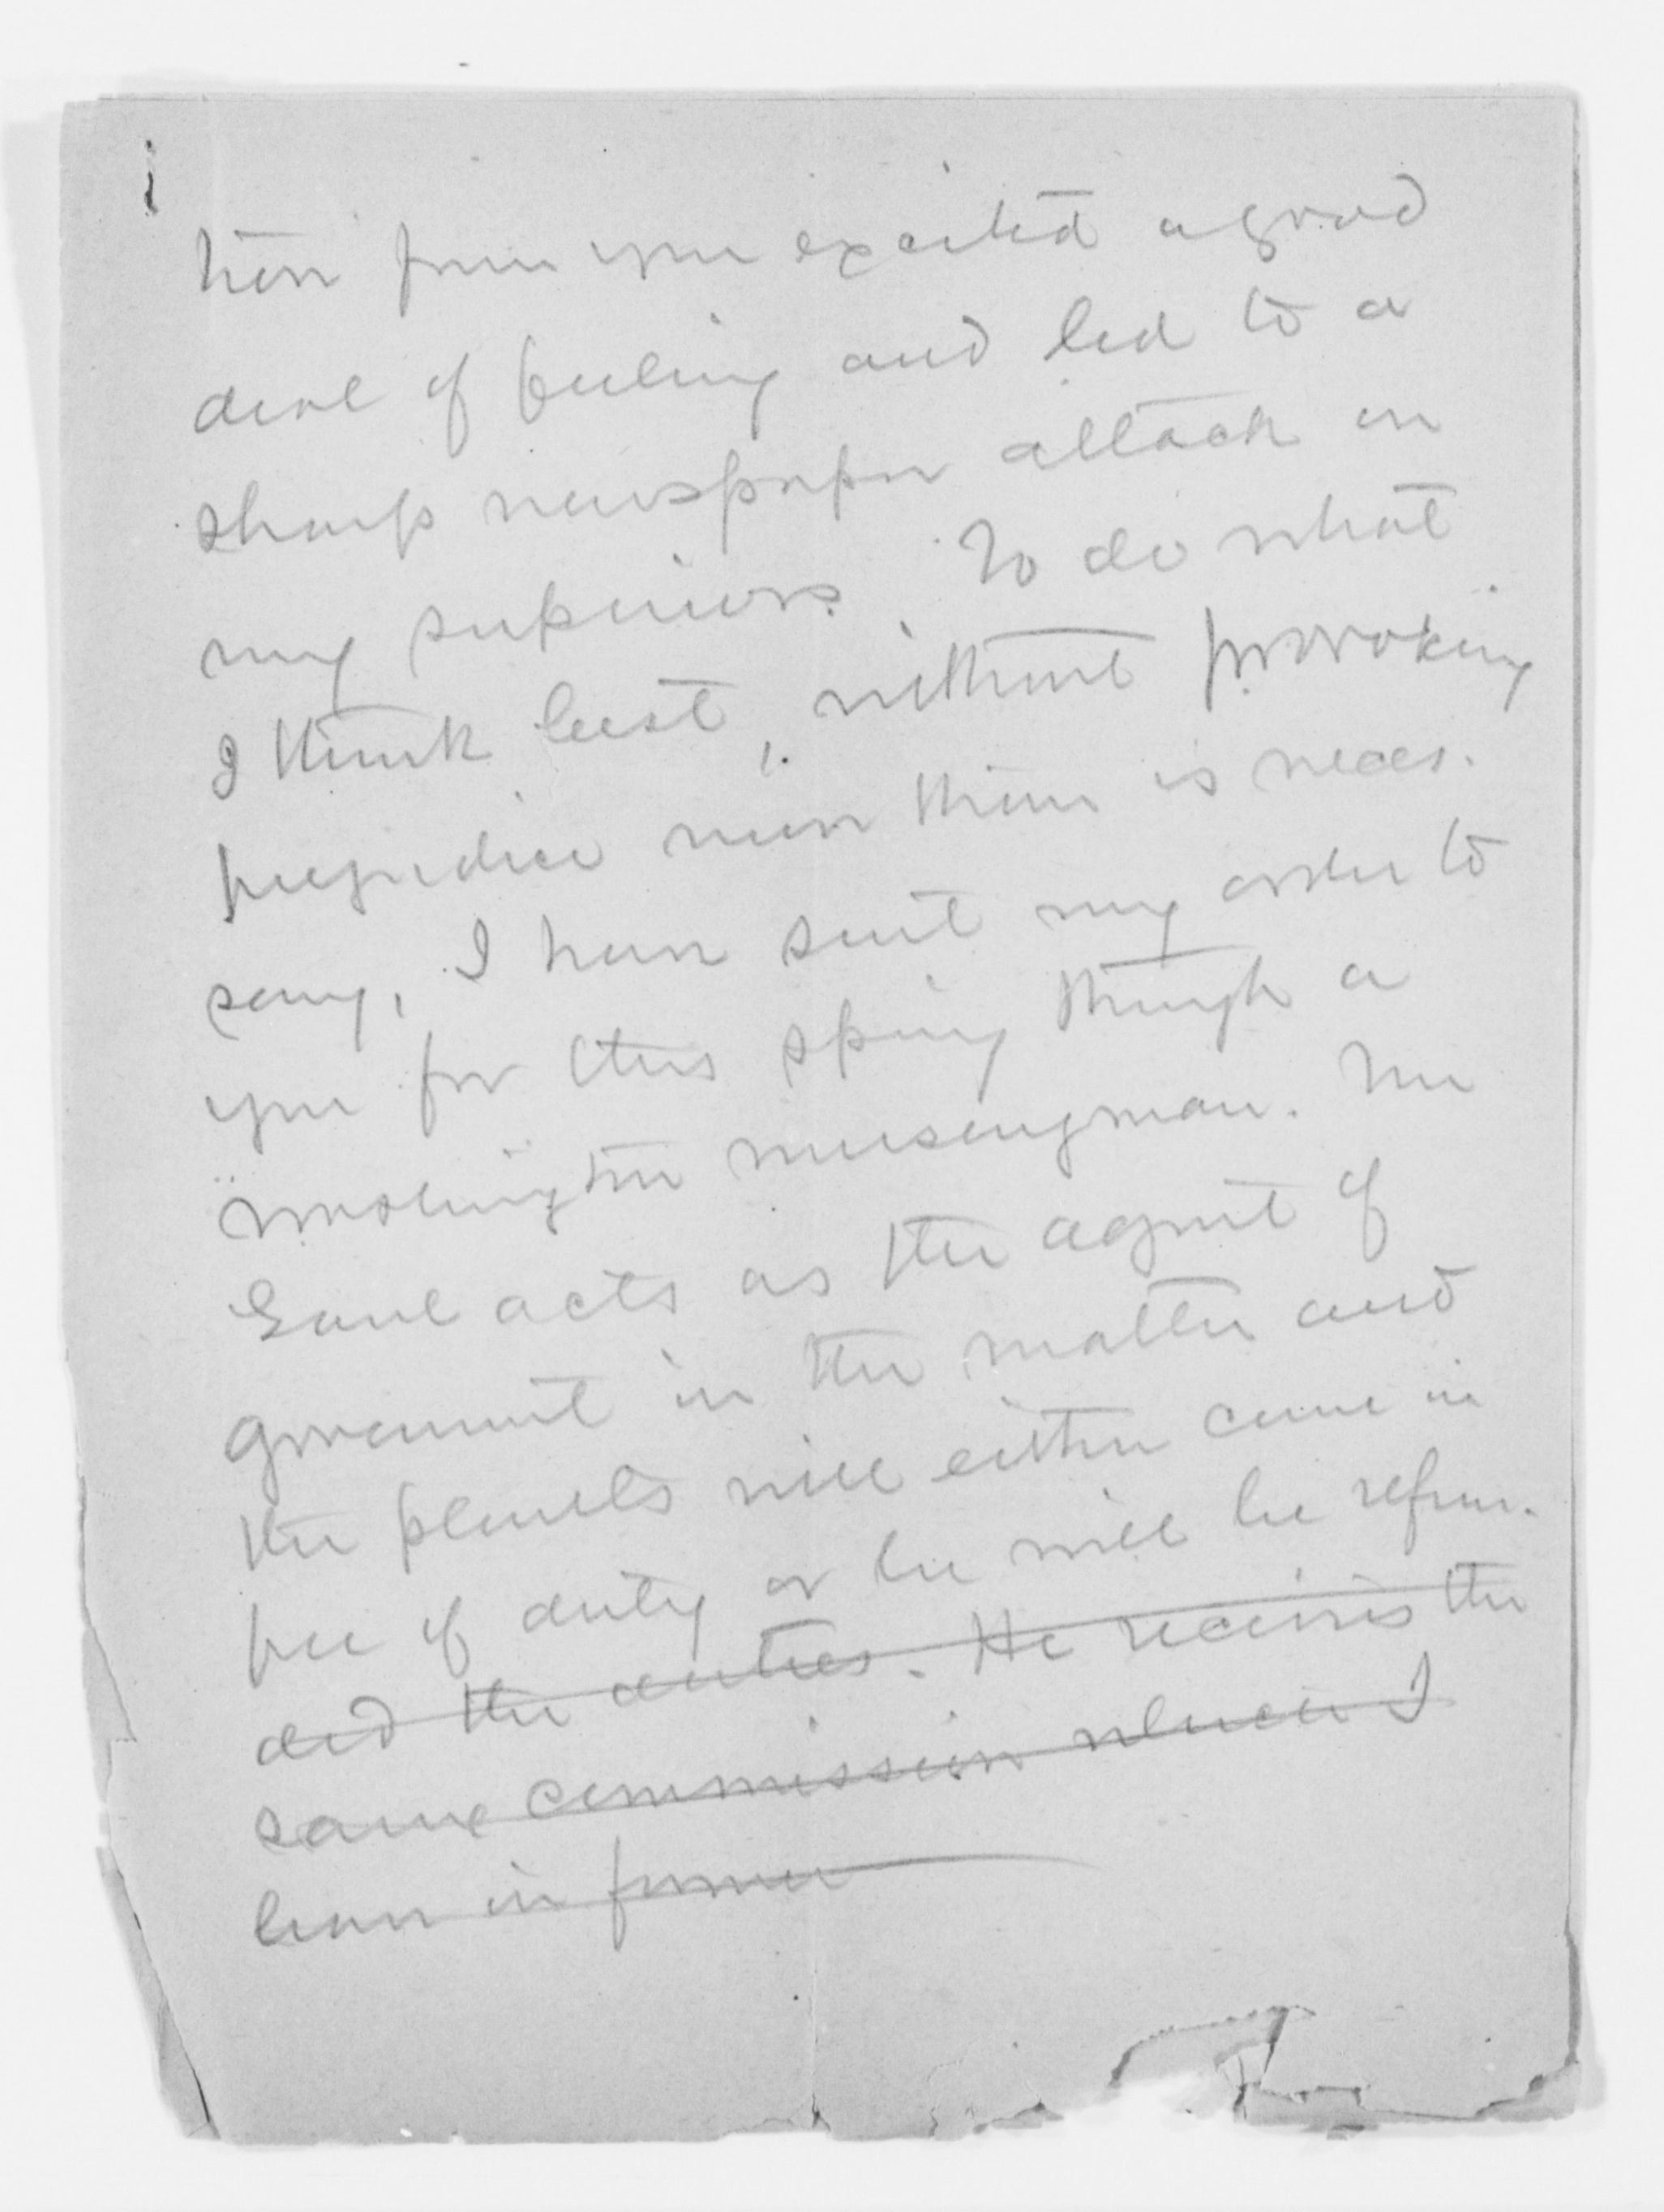 tion from you excited a good
deal of feeling and led to a
sharp newspaper attack on
my superiors. To do what
I think best, without provoking
prejudice more than is neces-
sary, I have sent my order to
you for this spring through a
Washington nurseryman. Mr
Saul acts as the agent of
government in the matter and
the plants will either come in
free of duty or he will be refun-
ded the duties. He receives the
same commission which I
have in former